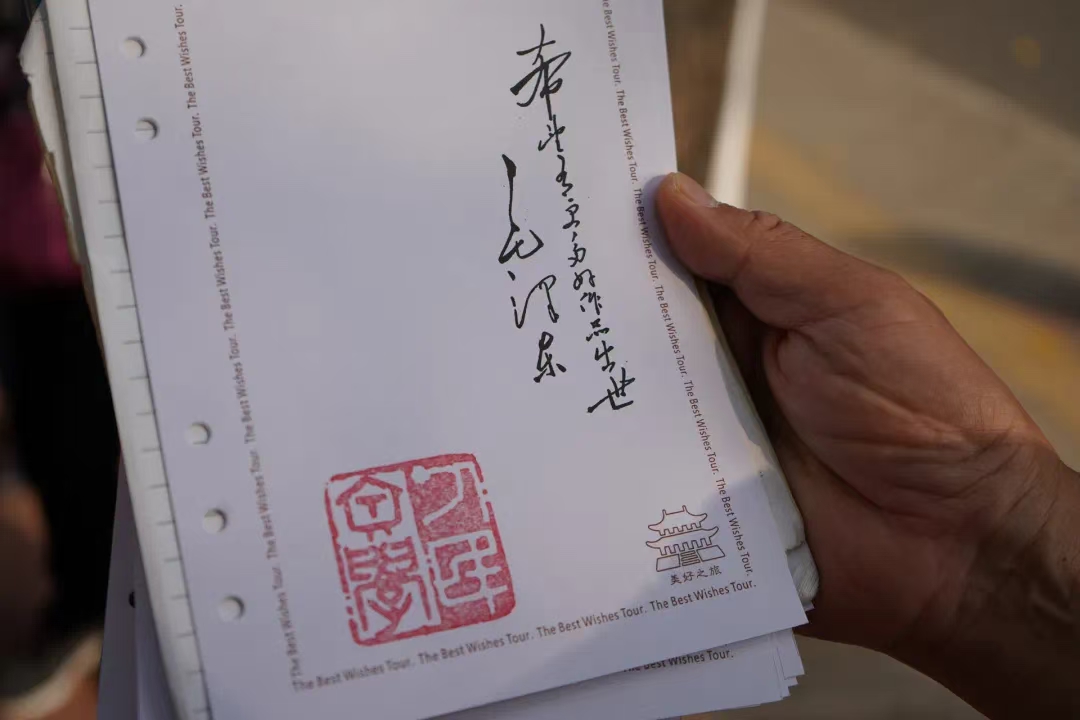 希望有更多好作品出世
毛泽东
The Best Wishes Tour. The Best Wishes Tour. The Best Wishes Tour. The Best Wishes Tour. The Best Wishes Tour. The Best Wishes Tour.
Best Wishes Tour. The Best Wishes Tour. The Best Wishes Tour. The Best Wishes Tour. The Best Wishes Tour. The Best Wishes Tour.
美好之旅
The Best Wishes Tour. The Best Wishes Tour. The Best Wishes Tour. The Best Wishes Tour.
Best Wishes Tour.